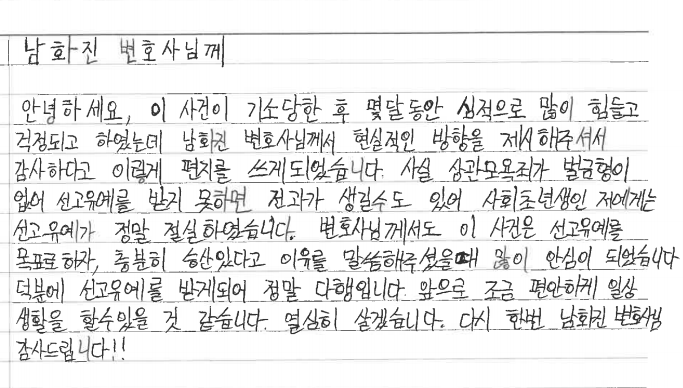 남화진 변호사님께
안녕하세요, 이 사건이 기소당한 후 몇달동안 심적으로 많이 힘들고
걱정되고 하였는데 남화진 변호사님께서 현실적인 방향을 제시해주셔서
감사하다고 이렇게 편지를 쓰게되었습니다. 사실 상관모욕죄가 벌금형이
없어 선고유예를 받지 못하면 전과가 생길수도 있어 사회초년생인 저에게는
선고유예가 정말 절실하였습니다. 변호사님께서도 이 사건은 선고유예를
목표로하자, 충분히 승산있다고 이유를 말씀해주셨을때 많이 안심이 되었습니다
덕분에 선고유예를 받게되어 정말 다행입니다. 앞으로 조금 편안하게 일상
생활을 할수있을 것 같습니다. 열심히 살겠습니다. 다시 한번 남화진 변호사님
감사드립니다!!